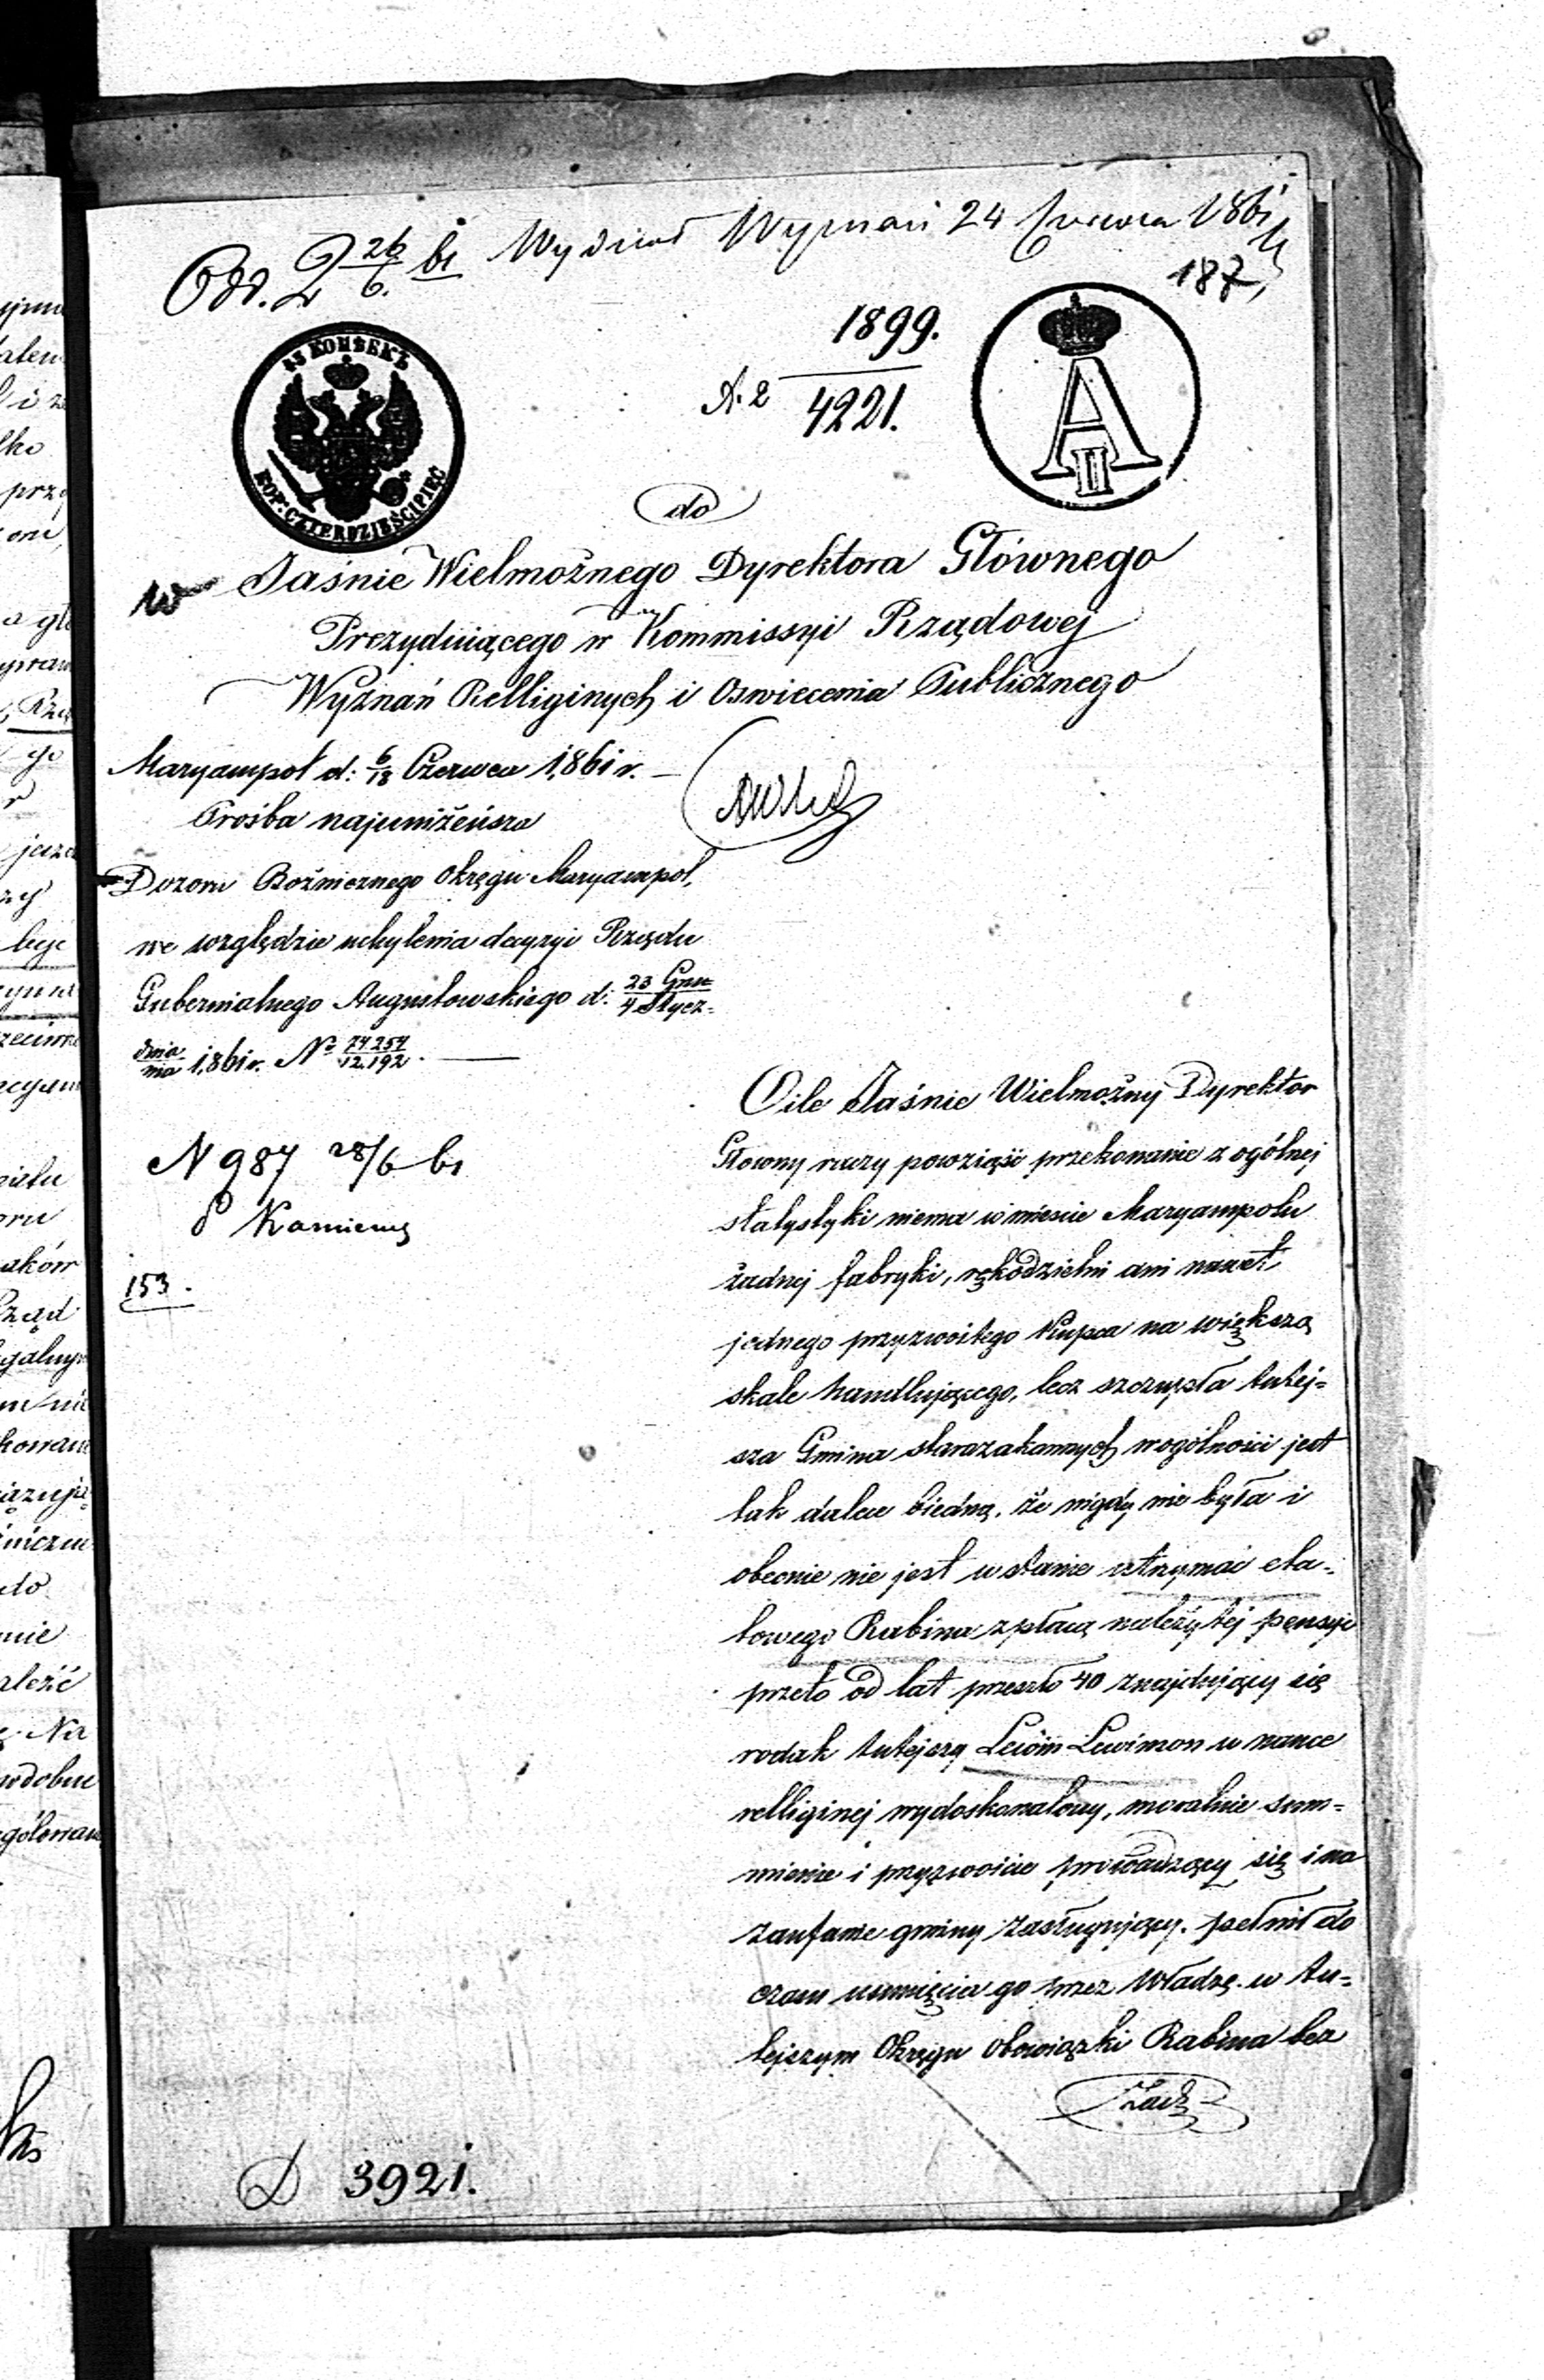 Odd. 2 26/6. 61 Wydział Wyznań 24 Czerwca 1861
187
1899.
A. 2 4221.
45 КОПѢЕКЪ
KOP: CZTERDZIEŚCI PIĘĆ
A II
do
w Jaśnie Wielmożnego Dyrektora Głównego
Prezydującego w Kommissyi Rządowej
Wyznań Relliginych i Oswiecenia Publicznego
Maryampol d: 6/18 Czerwca 1861 r. —
Prośba najuniżeńsza
Dozoru Bożnicznego Okręgu Maryampol,
we względzie uchylenia decyzyi Rządu
Gubernialnego Augustowskiego d: 23 Gru/4 Stycz=
dnia/nia 1861 r. No 74.254/12.192. —
N 987 28/6 61
P Kamieńs
153.
Oile Jaśnie Wielmożny Dyrektor
Głowny raczy powziąść przekonanie z ogólnej
statystyki niema w miescie Maryampolu
żadnej fabryki, rękodzielni ani nawet
jednego przyzwoitego Kupca na większą
skale handlującego, lecz szczupła tutej=
sza Gmina starozakonnych w ogólności jest
tak dalece biedną, że nigdy nie była i
obecnie nie jest w stanie utrzymać eta=
towego Rabina z płacą należytej pensyi
przeto od lat przeszło 40 znajdujący się
rodak tutejszy Lewin Lewinson w nauce
relliginej wydoskonalony, moralnie sum=
miennie i przyzwoicie prowadzący się i na
zaufanie gminy zasługujący. pełnił do
czasu usunięcia go przez Władzę. w tu=
tejszym Okręgu Obowiązki Rabina bez
żad
D 3921.